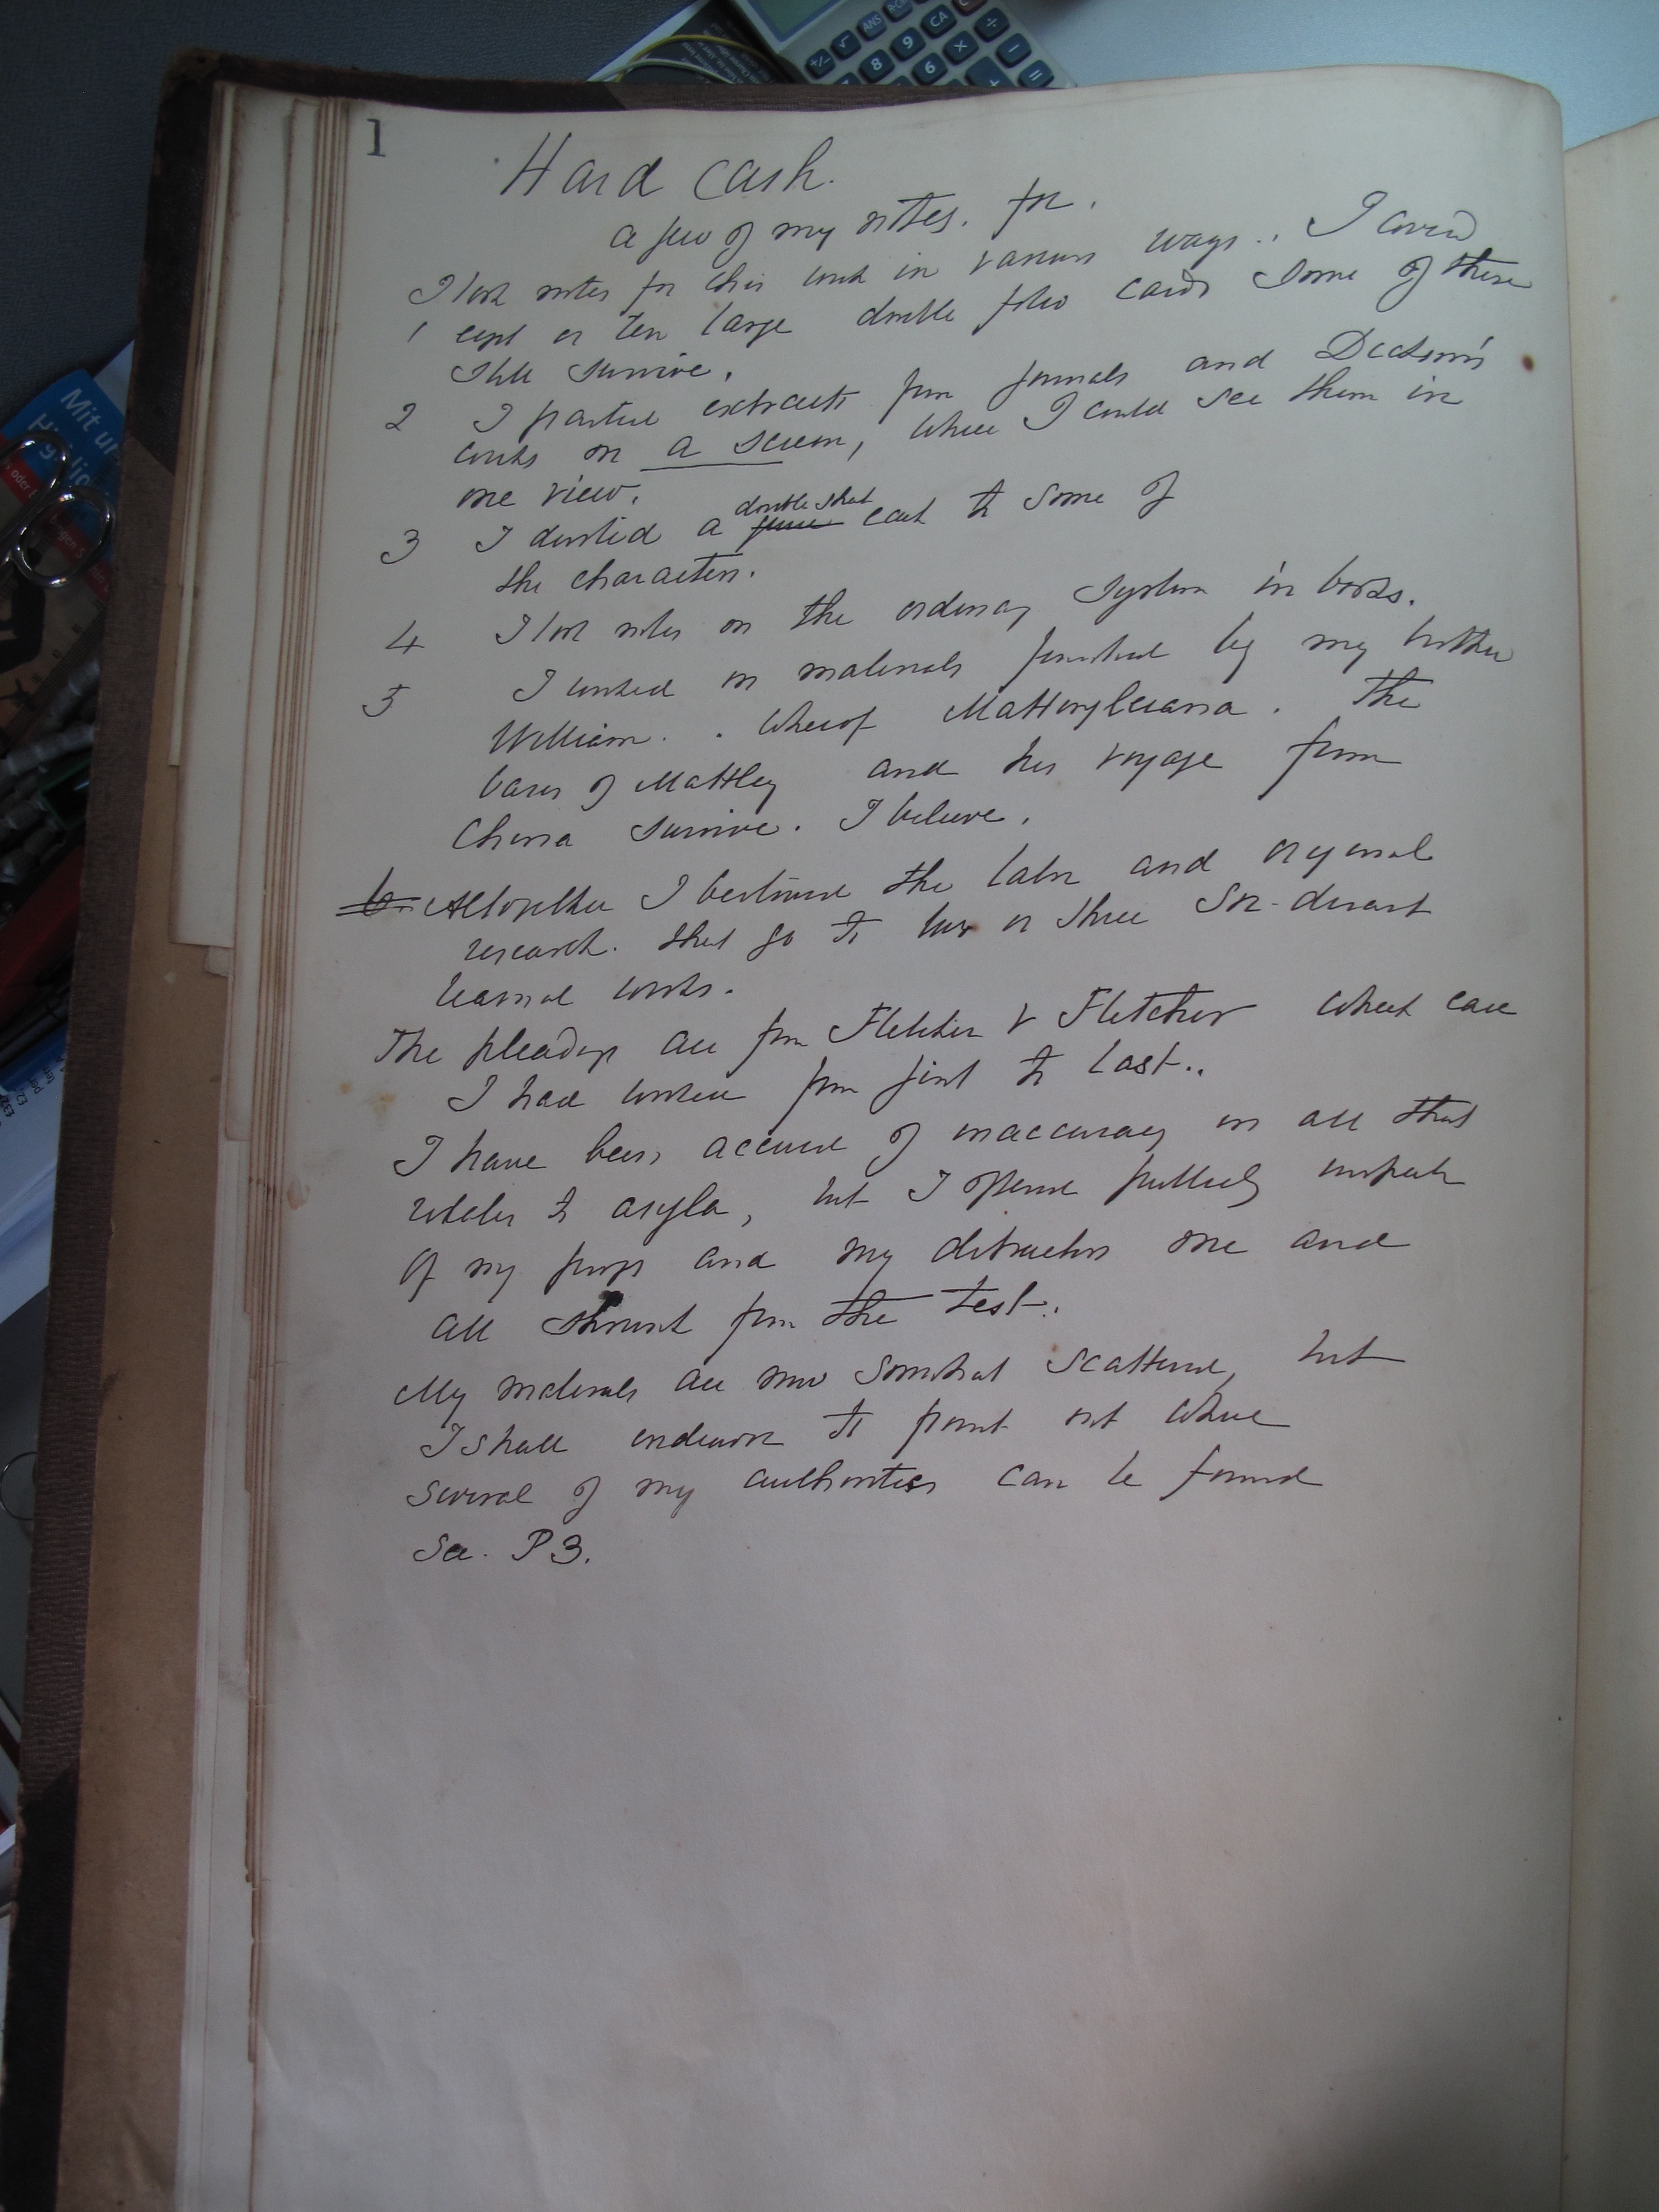 ANS
√
CA
+/-
8
9
×
÷
6
1
Hard Cash.
a few of my notes. for.
I took notes for this work in various ways.. I covered
1 eight or ten large double folio cards Some of these
still survive.
2 I pasted extracts from journals and Dickson's
works on a screen, where I could see them in
one view.
double sheet
3 I devoted a card to some of
the characters.
4 I took notes on the ordinary system in books.
5 I worked on materials furnished by my brother
William. . Whereof Mattheyleiana. The
bases of Matthey and his voyage from
China survive. I believe.
6. Altogether I bestowed the labor and original
research. that go to two or three soi-disant
learned works.
The pleadings are from Fletcher v Fletcher which case
I had worked from first to last..
I have been accused of inaccuracy in all that
relates to asyla, but I offered publicly inspection
of my proofs and my detractors one and
all shrunk from the test..
My materials are now somewhat scattered, but
I shall endeavor to point out where
several of my authorities can be found
See. P 3.